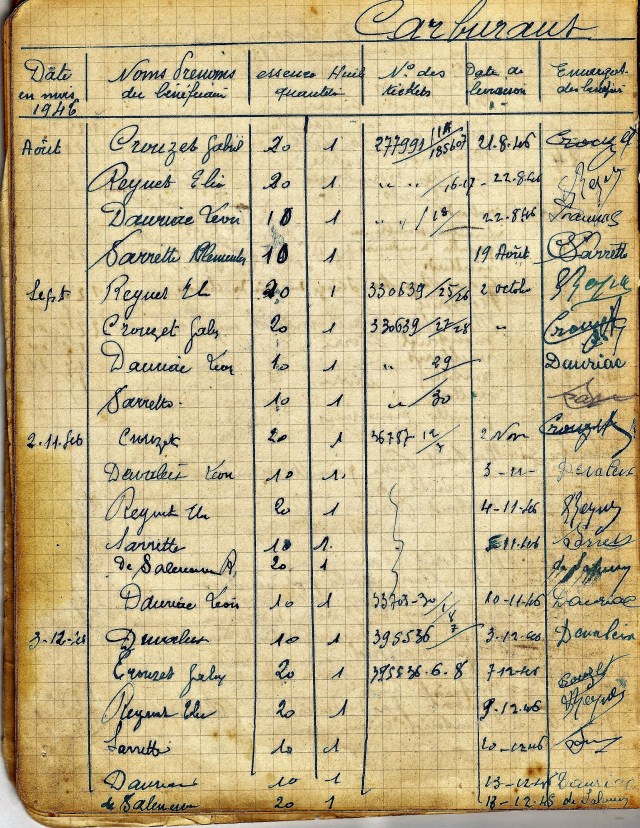 Carburant
Date en mois 1946 Noms Prénoms du bénéficiair essence Huil quantités N° des tickets Date de livraison Emargt des bénéfici
Août Crouzet Gabriel 20 1 277991 185607 21.8.46 Crouzet
Reynet Elie 20 1 " " /16-17 22.8.46
Dauriac Léon 10 1 " /18 22.8.46 Dauriac
Sarrette 10 1 19 Août Sarrette
Sept Reynet El 20 1 330639/25/26 2 octobre
Crouzet Gaby 20 1 330639/27/28 " Crouzet
Dauriac Léon 10 1 " 29 Dauriac
Sarrette 10 1 " /30
2.11.46 Crouzet 20 1 36787 2 Nov Crouzet
Devalois Léon 10 1 3-11-
Reynet El 20 1 4-11-46
Sarrette 10 1. 11.46 Sarrette
de 20 1
Dauriac Léon 10 1 33703-30 10-11-46 Dauriac
3-12-46 10 1 395536 3.12.46
Crouzet Gaby 20 1 395536.6.8 7.12.46 Crouzet
Reynet Elie 20 1 9.12.46
Sarrette 10 1 10-12-46
Dauriac 10 1 13-12-46 Dauriac
de 20 1 13-12-46 de